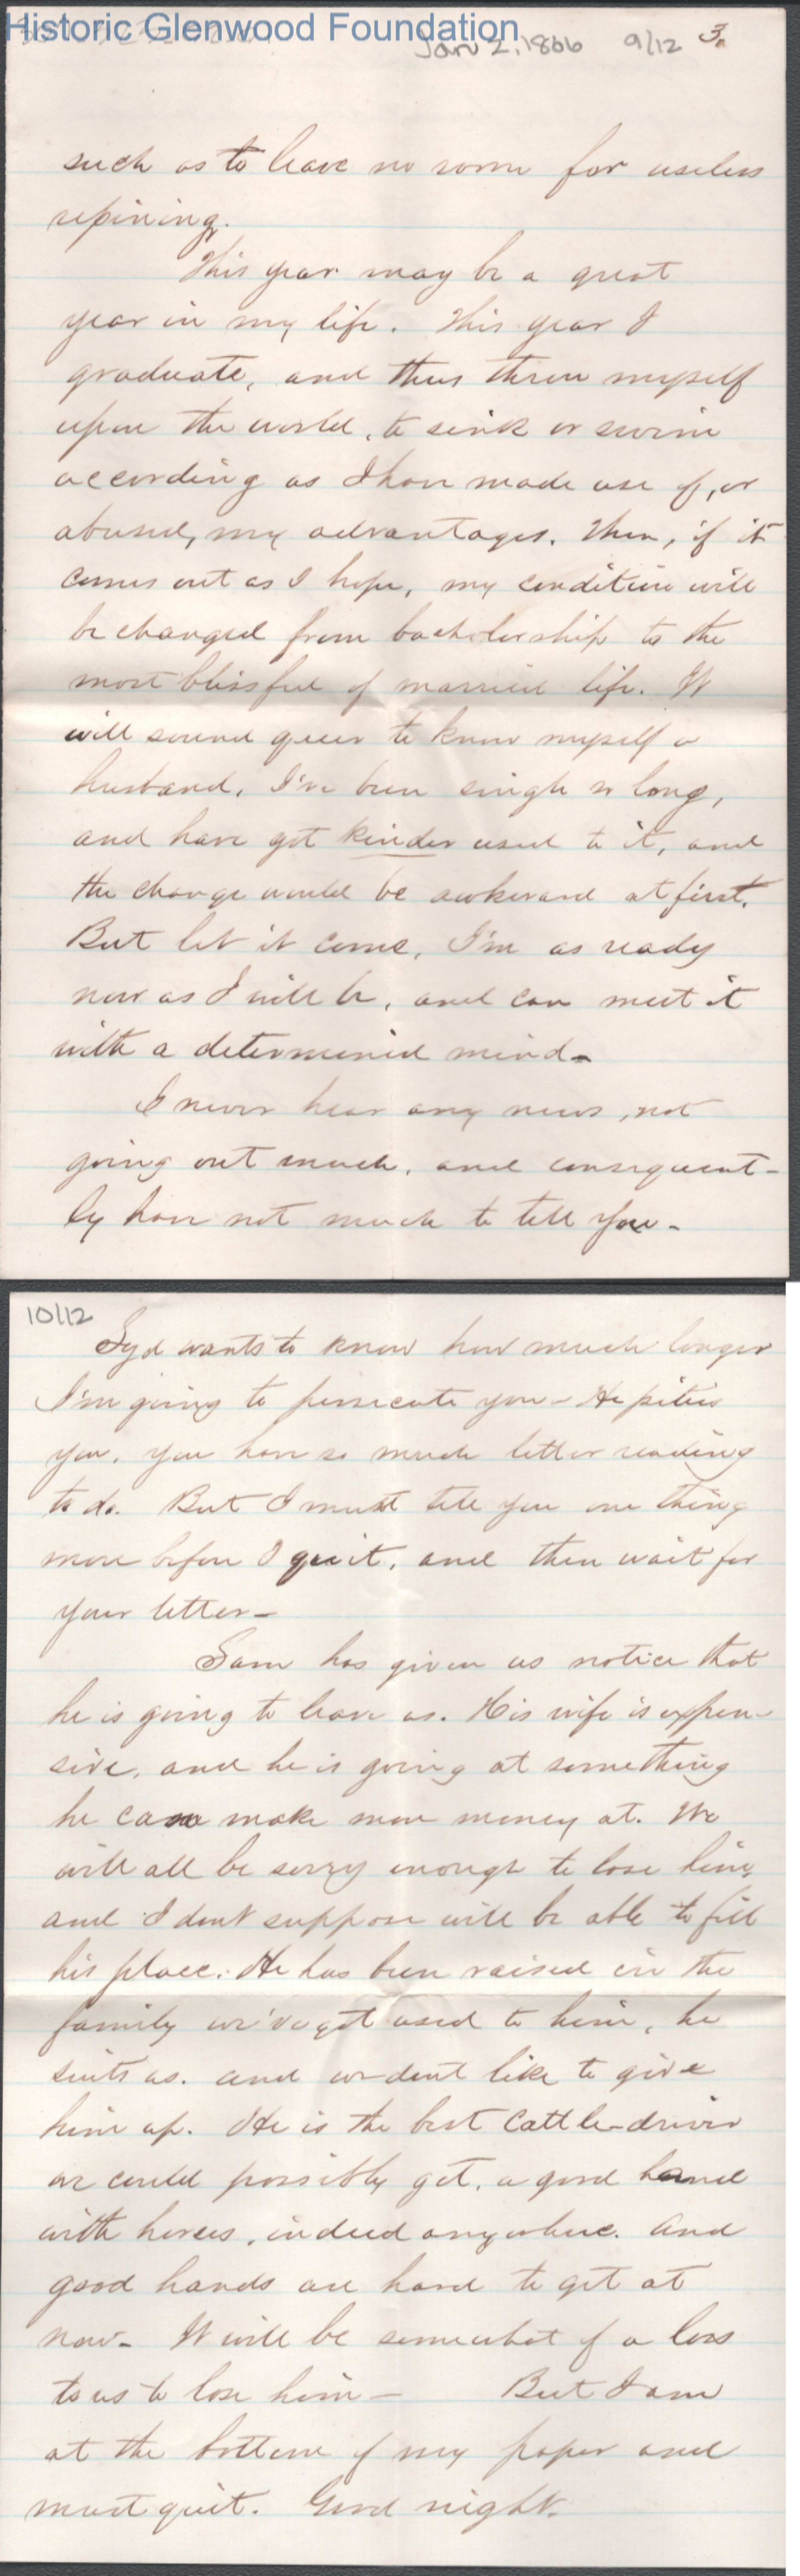 Historic Glenwood Foundation
Jan 2, 1866 9/12 3.
such as to leave no room for useless
repining.
This year may be a great
year in my life. This year I
graduate, and thus throw myself
upon the world, to sink or swim
according as I have made use of, or
abused, my advantages. Then, if it
comes out as I hope, my condition will
be changed from bachelorship to the
most blissful of married life. It
will sound queer to know myself a
husband, I've been single so long,
and have got kinder used to it, and
the change would be awkward at first.
But let it come, I'm as ready
now as I will be, and can meet it
with a determined mind-
I never hear any news, not
going out much, and consequent-
ly have not much to tell you-
10/12
Syd wants to know how much longer
I'm going to persecute you- He pities
you, you have so much letter reading
to do. But I must tell you one thing
more before I quit, and then wait for
your letter-
Sam has given us notice that
he is going to leave us. His wife is expen-
sive, and he is going at something
he can make more money at. We
will all be sorry enough to lose him,
and I dont suppose will be able to fill
his place. He has been raised in the
family we've got used to him, he
suits us. and we dont like to give
him up. He is the best cattle-driver
we could possibly get, a good hand
with horses, indeed anywhere. And
good hands are hard to get at
now- It will be somewhat of a loss
to us to lose him- But I am
at the bottom of my paper and
must quit. Good night.